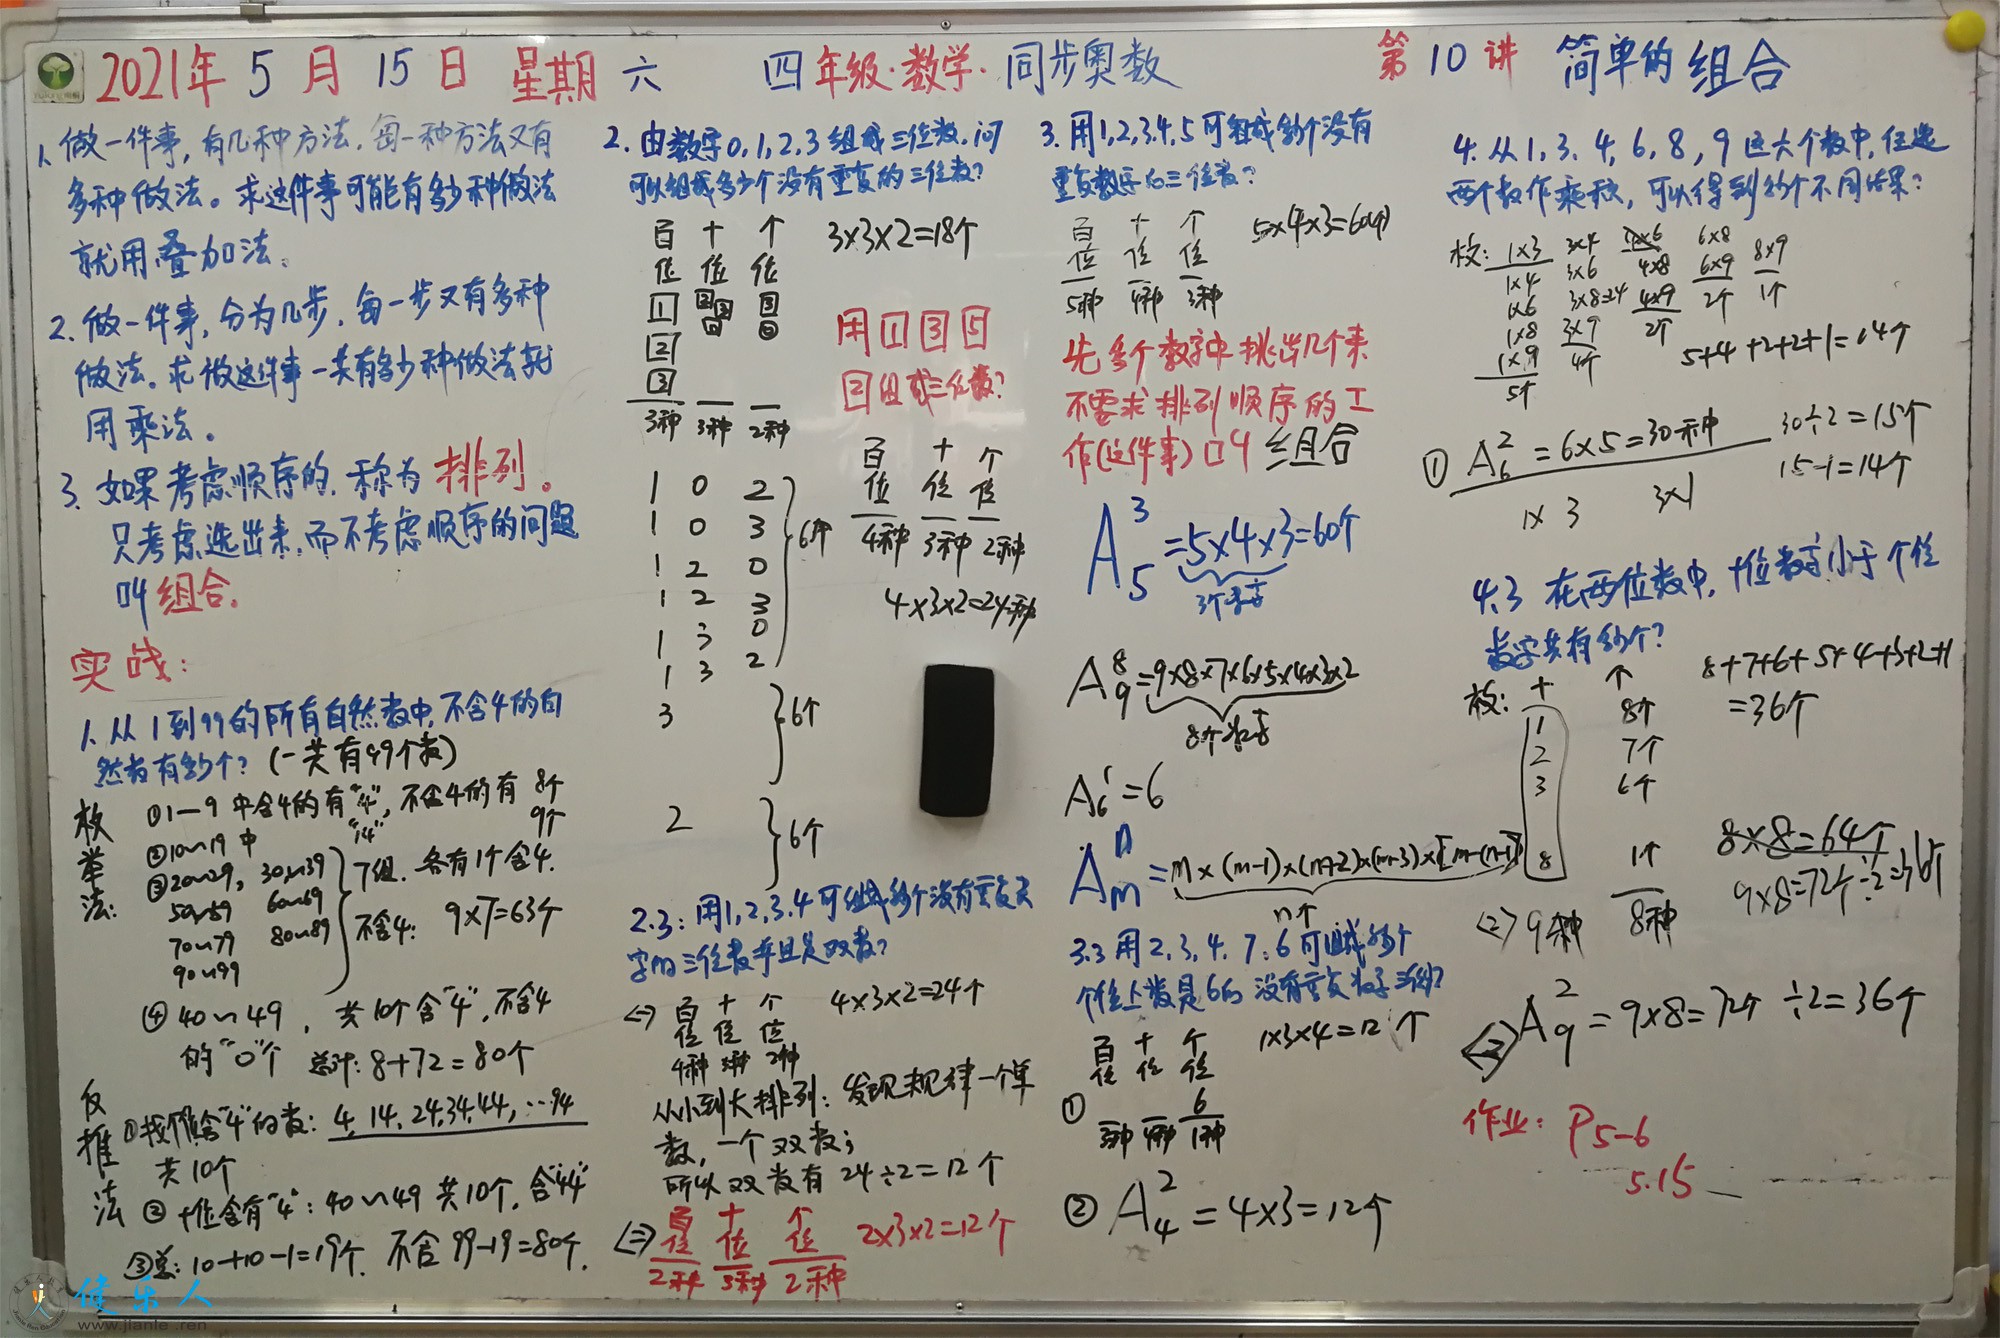 2021年5月15日 星期六 四年级·数学·同步奥数 第10讲 简单的组合
1. 做一件事,有几种方法,每一种方法又有
多种做法。求这件事可能有多少种做法
就用叠加法。
2. 做一件事,分为几步,每一步又有多种
做法。求做这件事一共有多少种做法就
用乘法。
3. 如果考虑顺序的,称为排列。
只考虑选出来,而不考虑顺序的问题
叫组合。
实战:
1. 从1到99的所有自然数中,不含4的自
然数有多少个?(一共有99个数)
枚举法:
①1—9中含4的有"4",不含4的有8个
②10~19中 "14" 9个
③20~29, 30~39
50~59 60~69
70~79 80~89
90~99
7组.各有1个含4.
不含4: 9×7=63个
④40~49,共10个含"4",不含4
的"0"个 总计:8+72=80个
反推法
①找个位含"4"的数:4,14,24,34,44,…94
共10个
②十位含有"4":40~49共10个,含"44"
③总:10+10-1=19个.不含99-19=80个.
2. 由数字0,1,2,3组成三位数,问
可以组成多少个没有重复的三位数?
百位 十位 个位
3×3×2=18个
1 2 3 0 3 0
2
3
3种 3种 2种
用1 3 5
2组成三位数?
百位 十位 个位
4种 3种 2种
4×3×2=24种
1 0 2
1 0 3
1 2 0
1 2 3
1 3 0
1 3 2
6个
3 6个
2 6个
2.3:用1,2,3,4可组成多少个没有重复数
字的三位数并且是双数?
<1> 百位 十位 个位 4×3×2=24个
4种 3种 2种
从小到大排列:发现规律一个单
数,一个双数;
所以双数有24÷2=12个
<2> 百位 十位 个位 2×3×2=12个
2种 3种 2种
3. 用1,2,3,4,5可组成多少个没有
重复数字的三位数?
百位 十位 个位 5×4×3=60个
5种 4种 3种
先多个数字中挑出几个来
不要求排列顺序的工
作(这件事)叫组合
A₅³=5×4×3=60个
3个数
A₉⁸=9×8×7×6×5×4×3×2
8个数
A₆¹=6
Aₘⁿ=m×(m-1)×(m-2)×(m-3)×[m-(n-1)]
n个
3.3用2,3,4,7,6可组成多少个
个位上数是6的没有重复数字三位数?
百位 十位 个位 1×3×4=12个
① 6
3种 4种 1种
② A₄²=4×3=12个
4. 从1,3,4,6,8,9这六个数中,任选
两个数作乘积,可以得到多少个不同结果?
枚: 1×3 3×4 4×6 6×8 8×9
1×4 3×6 4×8 6×9 1个
1×6 3×8=24 4×9 2个
1×8 3×9 2个
1×9 4个
5个
5+4+2+2+1=14个
① A₆²=6×5=30种 30÷2=15个
1×3 3×1 15-1=14个
4.3 在两位数中,十位数字小于个位
数字共有多少个?
枚: 十 个 8+7+6+5+4+3+2+1
1 8个 =36个
2 7个
3 6个
8 1个 8×8=64个
<2> 9种 8种 9×8=72个÷2=36个
<2> A₉²=9×8=72个÷2=36个
作业:P5-6
5.15
健乐人
www.jianle.ren